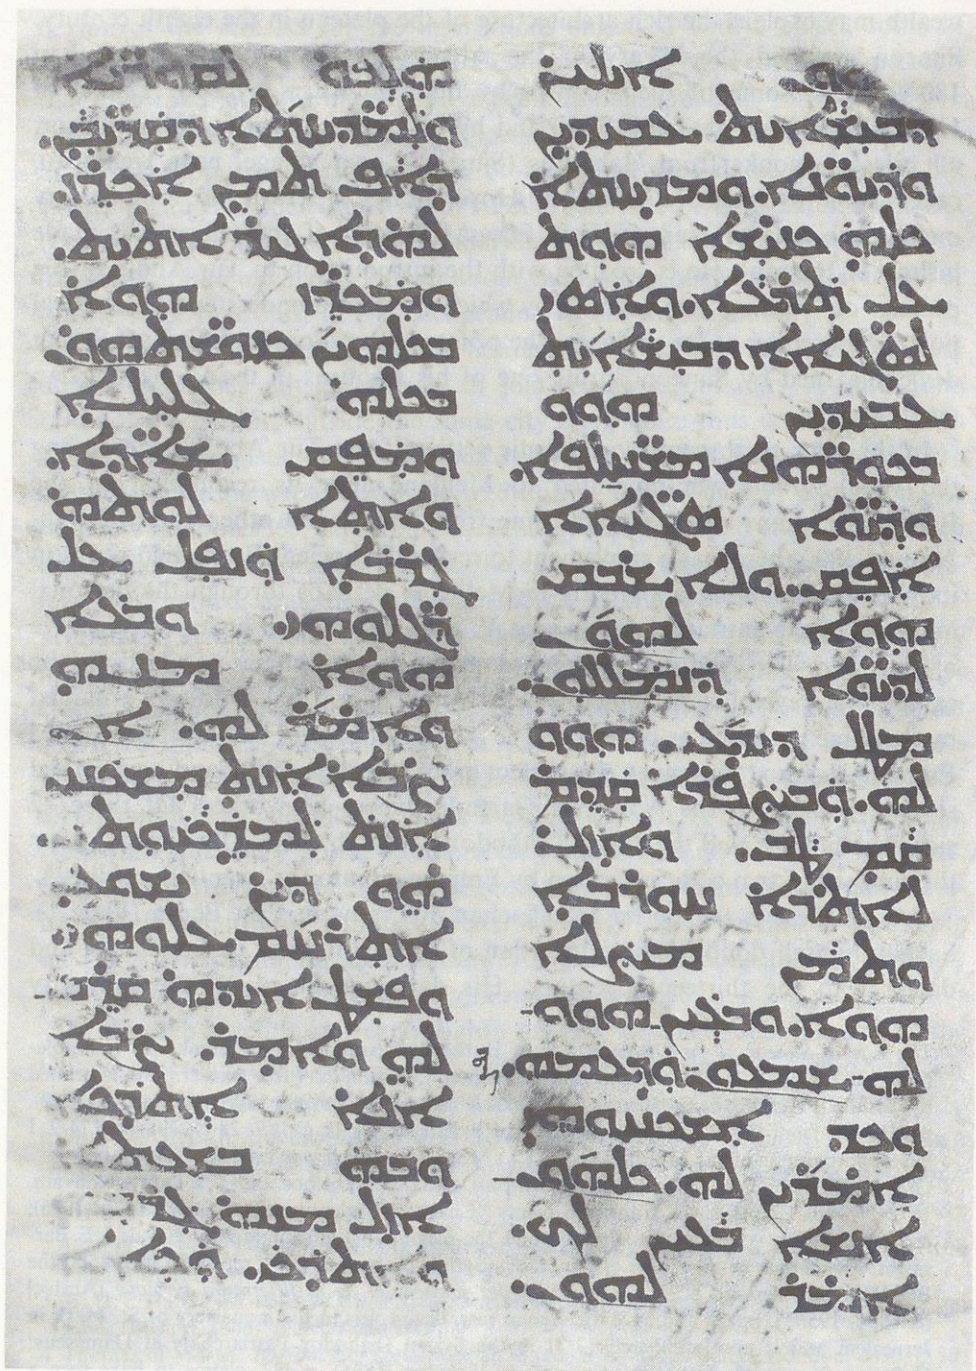 ܘܢ ܐܝܠܝܢ
ܕܒܝܫܐܝܬ ܥܒܝܕܝܢ
ܘܕܝܘ̈ܢܐ. ܘܡܕܝܢܬܐ
ܟܠܗ ܟܢܝܫܐ ܗܘܬ
ܥܠ ܬܪܥܐ. ܘܐܣܝ
ܠܣܓܝ̈ܐܐ ܕܒܝܫܐܝܬ
ܥܒܝܕܝܢ ܗܘܘ
ܒܟܘܪ̈ܗܢܐ ܡܫܚ̈ܠܦܐ.
ܘܕܝܘ̈ܐ ܣܓܝ̈ܐܐ
ܐܦܩ. ܘܠܐ ܫܒܩ
ܗܘܐ ܠܗܘܢ
ܠܕܝܘ̈ܐ ܕܢܡܠܠܘܢ.
ܡܛܠ ܕܝܕܥܝܢ. ܗܘܘ
ܠܗ. ܘܒܨܦܪܐ ܩܕܡ
ܩܡ ܛܒ. ܘܐܙܠ
ܠܐܬܪܐ ܚܘܪܒܐ
ܘܬܡܢ ܡܨܠܐ
ܗܘܐ. ܘܒܥܝܢ ܗܘܘ
ܠܗ ܫܡܥܘܢ ܘܕܥܡܗ.
ܘܟܕ ܐܫܟܚܘܗܝ
ܐܡܪܝܢ ܠܗ. ܟܠܗܘܢ
ܐܢܫܐ ܒܥܝܢ ܠܟ.
ܐܡܪ ܠܗܘܢ.
ܗܠܟܘ ܠܩܘܪ̈ܝܐ
ܘܠܡܕܝ̈ܢܬܐ ܕܩܪ̈ܝܒܢ.
ܕܐܦ ܬܡܢ ܐܟܪܙ.
ܠܗܕܐ ܓܝܪ ܐܬܝܬ.
ܘܡܟܪܙ ܗܘܐ
ܒܟܠܗܝܢ ܟܢܘܫ̈ܬܗܘܢ
ܒܟܠܗ ܓܠܝܠܐ
ܘܡܦܩ ܫܐܕ̈ܐ.
ܘܐܬܐ ܠܘܬܗ
ܓܪܒܐ ܘܢܦܠ ܥܠ
ܪ̈ܓܠܘܗܝ ܘܒܥܐ
ܗܘܐ ܡܢܗ
ܘܐܡܪ ܠܗ. ܐܢ
ܨܒܐ ܐܢܬ ܡܫܟܚ
ܐܢܬ ܠܡܕܟܝܘܬܝ.
ܗܘ ܕܝܢ ܝܫܘܥ
ܐܬܪܚܡ ܥܠܘܗܝ
ܘܦܫܛ ܐܝܕܗ ܩܪܒ
ܠܗ ܘܐܡܪ. ܨܒܐ
ܐܢܐ ܐܬܕܟܐ
ܘܒܗ ܒܫܥܬܐ
ܐܙܠ ܡܢܗ ܓܪܒܗ
ܘܐܬܕܟܝ. ܘܟܐܐ